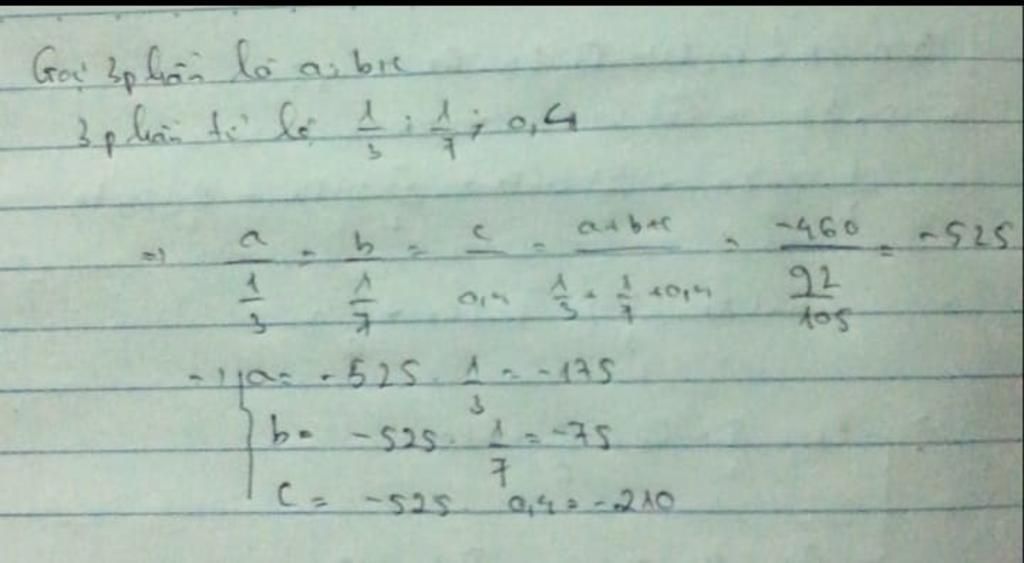 Gọi 3 phần là a, b, c
3 phần tỉ lệ 1/3 ; 1/7 ; 0,4
=> a/(1/3) = b/(1/7) = c/0,4 = (a+b+c)/(1/3 + 1/7 + 0,4) = -460/(92/105) = -525
=> { a = -525 . 1/3 = -175
b = -525 . 1/7 = -75
c = -525 . 0,4 = -210